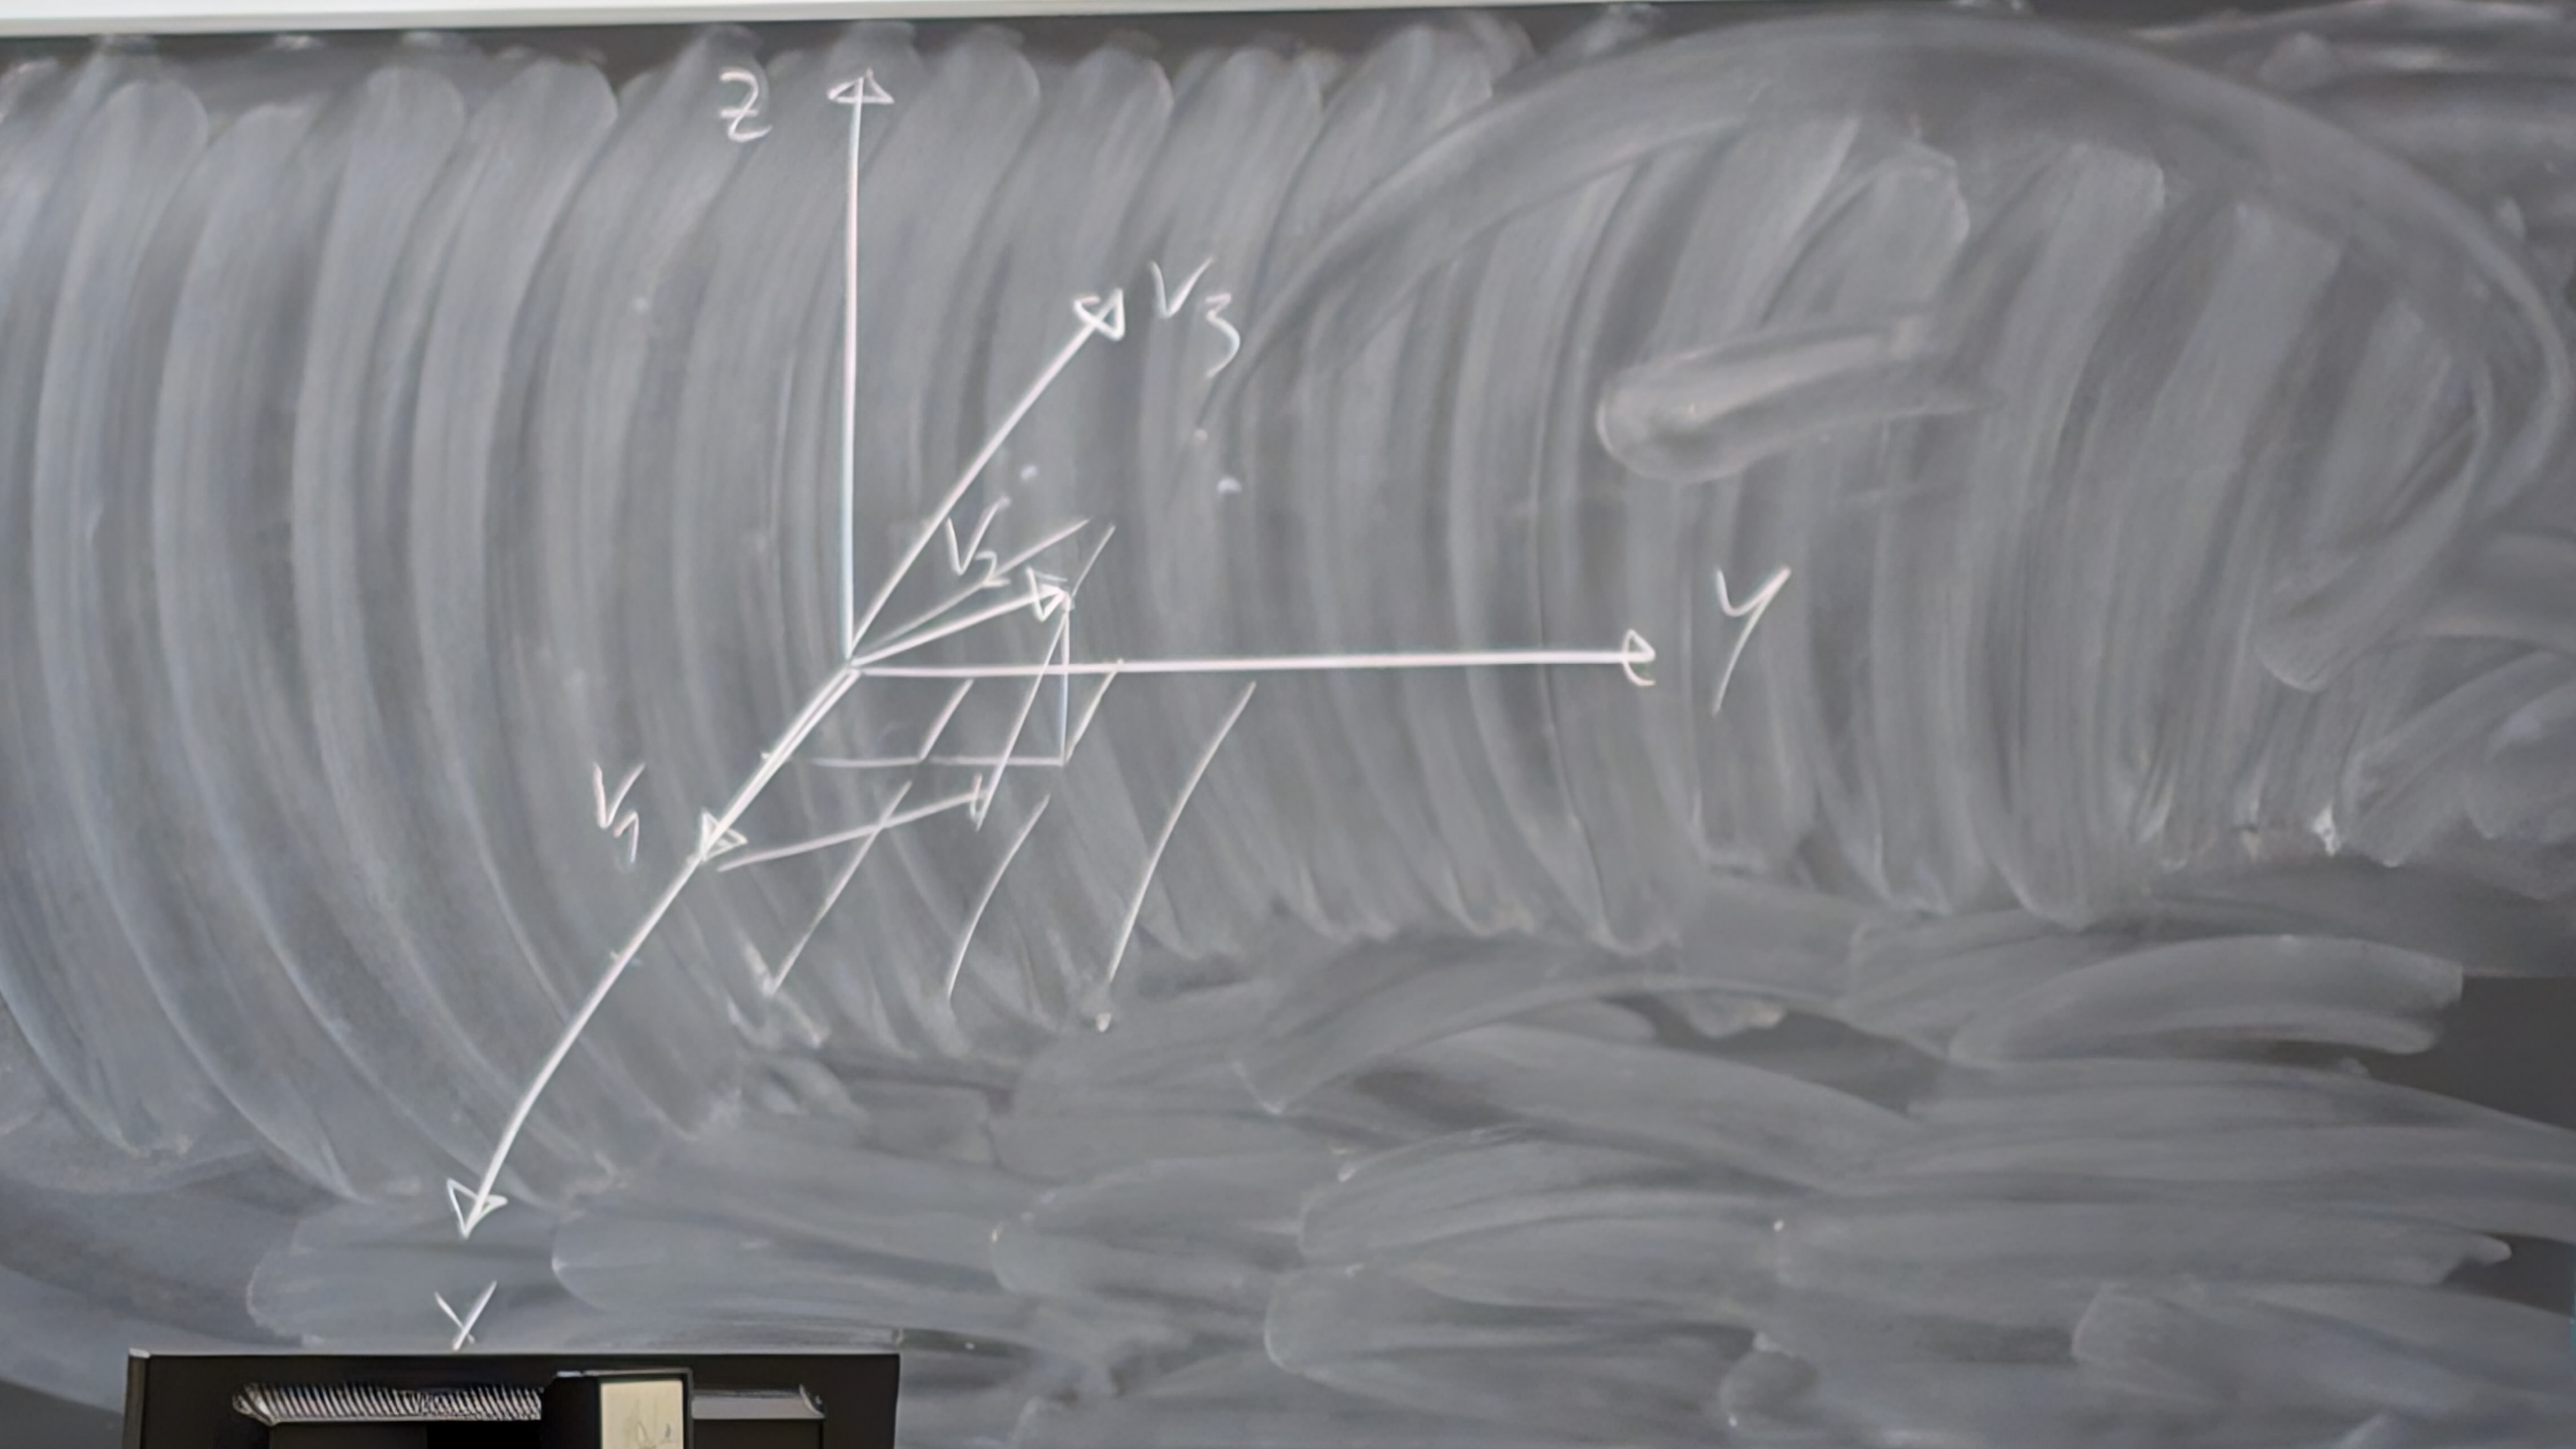 Z
V3
V2
y
V1
x